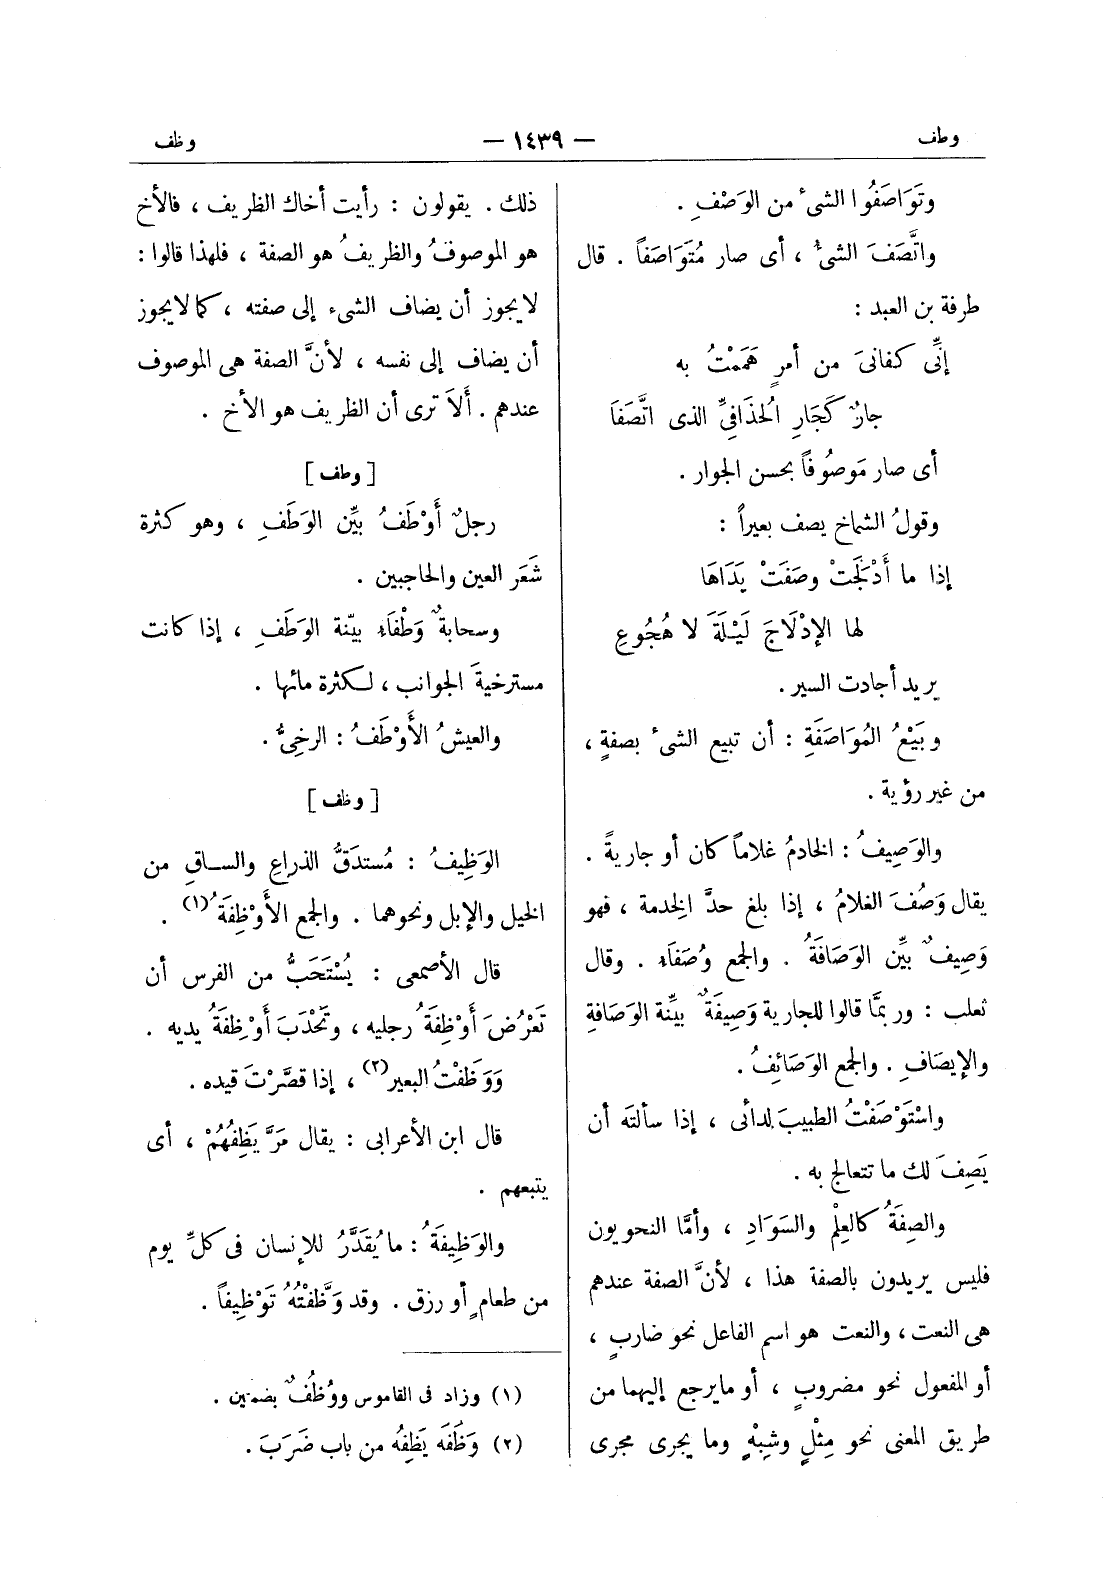 وطف
— ١٤٣٩ —
وظف
وتَوَاصَفُوا الشىءَ من الوَصْفِ .
واتَّصَفَ الشىءُ ، أى صار مُتَوَاصَفاً . قال
طرفة بن العبد :
إنِّى كفانىَ من أمرٍ هَمَمْتُ به
جارٌ كَجَارِ الحُذَافِىِّ الذى اتَّصَفَا
أى صار مَوصُوفاً بحسن الجوار .
وقولُ الشماخ يصف بعيراً :
إذا ما أَدْلَجَتْ وصَفَتْ يَدَاهَا
لها الإدْلَاجَ لَيْلَةَ لا هُجُوعِ
يريد أجادت السير .
وبَيْعُ المُوَاصَفَةِ : أن تبيع الشىءَ بصفةٍ ،
من غير رؤية .
والوَصِيفُ : الخادمُ غلاماً كان أو جاريةً .
يقال وَصُفَ الغلامُ ، إذا بلغ حدَّ الخدمة ، فهو
وَصِيفٌ بيِّن الوَصَافَةُ . والجمع وُصَفَاء . وقال
ثعلب : وربمَّا قالوا للجارية وَصِيفَةٌ بيِّنة الوَصَافةِ
والإيصَافِ . والجمع الوَصَائفُ .
واسْتَوْصَفْتُ الطبيبَ لدائى ، إذا سألته أن
يَصِفَ لك ما تتعالج به .
والصِفَةُ كالعِلْمِ والسَوَادِ ، وأمَّا النحويون
فليس يريدون بالصفة هذا ، لأنَّ الصفة عندهم
هى النعت ، والنعت هو اسم الفاعل نحو ضاربٍ ،
أو المفعول نحو مضروبٍ ، أو ما يرجع إليهما من
طريق المعنى نحو مِثْلٍ وشِبْهٍ وما يجرى مجرى
ذلك . يقولون : رأيت أخاك الظريف ، فالأخ
هو الموصوفُ والظريفُ هو الصفة ، فلهذا قالوا :
لا يجوز أن يضاف الشىء إلى صفته ، كما لا يجوز
أن يضاف إلى نفسه ، لأنَّ الصفة هى الموصوف
عندهم . أَلَا ترى أن الظريف هو الأخ .
[ وطف ]
رجلٌ أَوْطَفُ بيِّن الوَطَفِ ، وهو كثرة
شَعَر العين والحاجبين .
وسحابةٌ وَطْفَاء بيّنة الوَطَفِ ، إذا كانت
مسترخيةَ الجوانب ، لكثرة مائها .
والعيشُ الأَوْطَفُ : الرخِىُّ .
[ وظف ]
الوَظِيفُ : مُستدَقُّ الذراعِ والساقِ من
الخيل والإبل ونحوهما . والجمع الأَوْظِفَةُ (١) .
قال الأصمعى : يُسْتَحَبُّ من الفرس أن
تَعْرُضَ أَوْظِفَةُ رجليه ، وتَحْدَبَ أَوْظِفَةُ يديه .
وَوَظَفْتُ البعير (٢) ، إذا قصَّرْتَ قيده .
قال ابن الأعرابى : يقال مَرَّ يَظِفُهُمْ ، أى
يتبعهم .
والوَظِيفَةُ : ما يُقَدَّرُ للإنسان فى كلِّ يوم
من طعامٍ أو رزق . وقد وَظَّفْتُهُ تَوْظِيفاً .
(١) وزاد فى القاموس ووُظُفٌ بضمتين .
(٢) وَظَفَه يَظِفُه من باب ضَرَبَ .